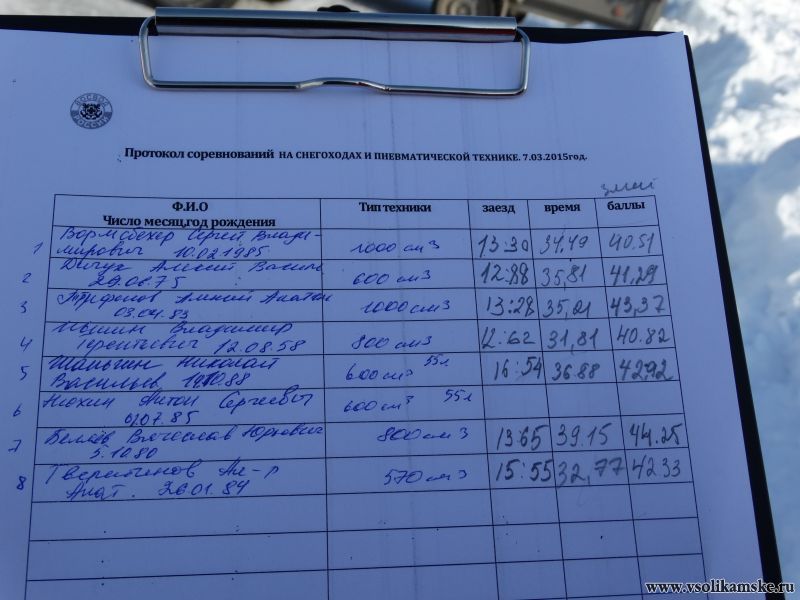 ОСВОД
РОССИИ
Протокол соревнований НА СНЕГОХОДАХ И ПНЕВМАТИЧЕСКОЙ ТЕХНИКЕ. 7.03.2015год.
змей
Ф.И.О
Число месяц,год рождения
Тип техники
заезд
время
баллы
1 Вормсбехер Сергей Влади-
мирович 10.02.1985
1000 см3
13:30
34,49
40.51
2 Алексей
29.06.75
600 см3
12:88
35,81
41,29
3 Трифонов Алексей Анатол
03.04.83
1000 см3
13:28
35,01
43,37
4 Владимир
Терентьевич 12.08.58
800 см3
12:62
31,81
40.82
5 Шаньгин Николай
Васильев 88
600 см3 55л
16:54
36.88
42.92
6 Нюхин Антон Сергеевич
07.85
600 см3 55л
7 Беляев Вячеслав Юрьевич
5.10.80
800 см3
13:65
39.15
44.25
8 Ал-р
Анат. 26.01.84
570 см3
15:55
32,77
42.33
www.vsolikamske.ru